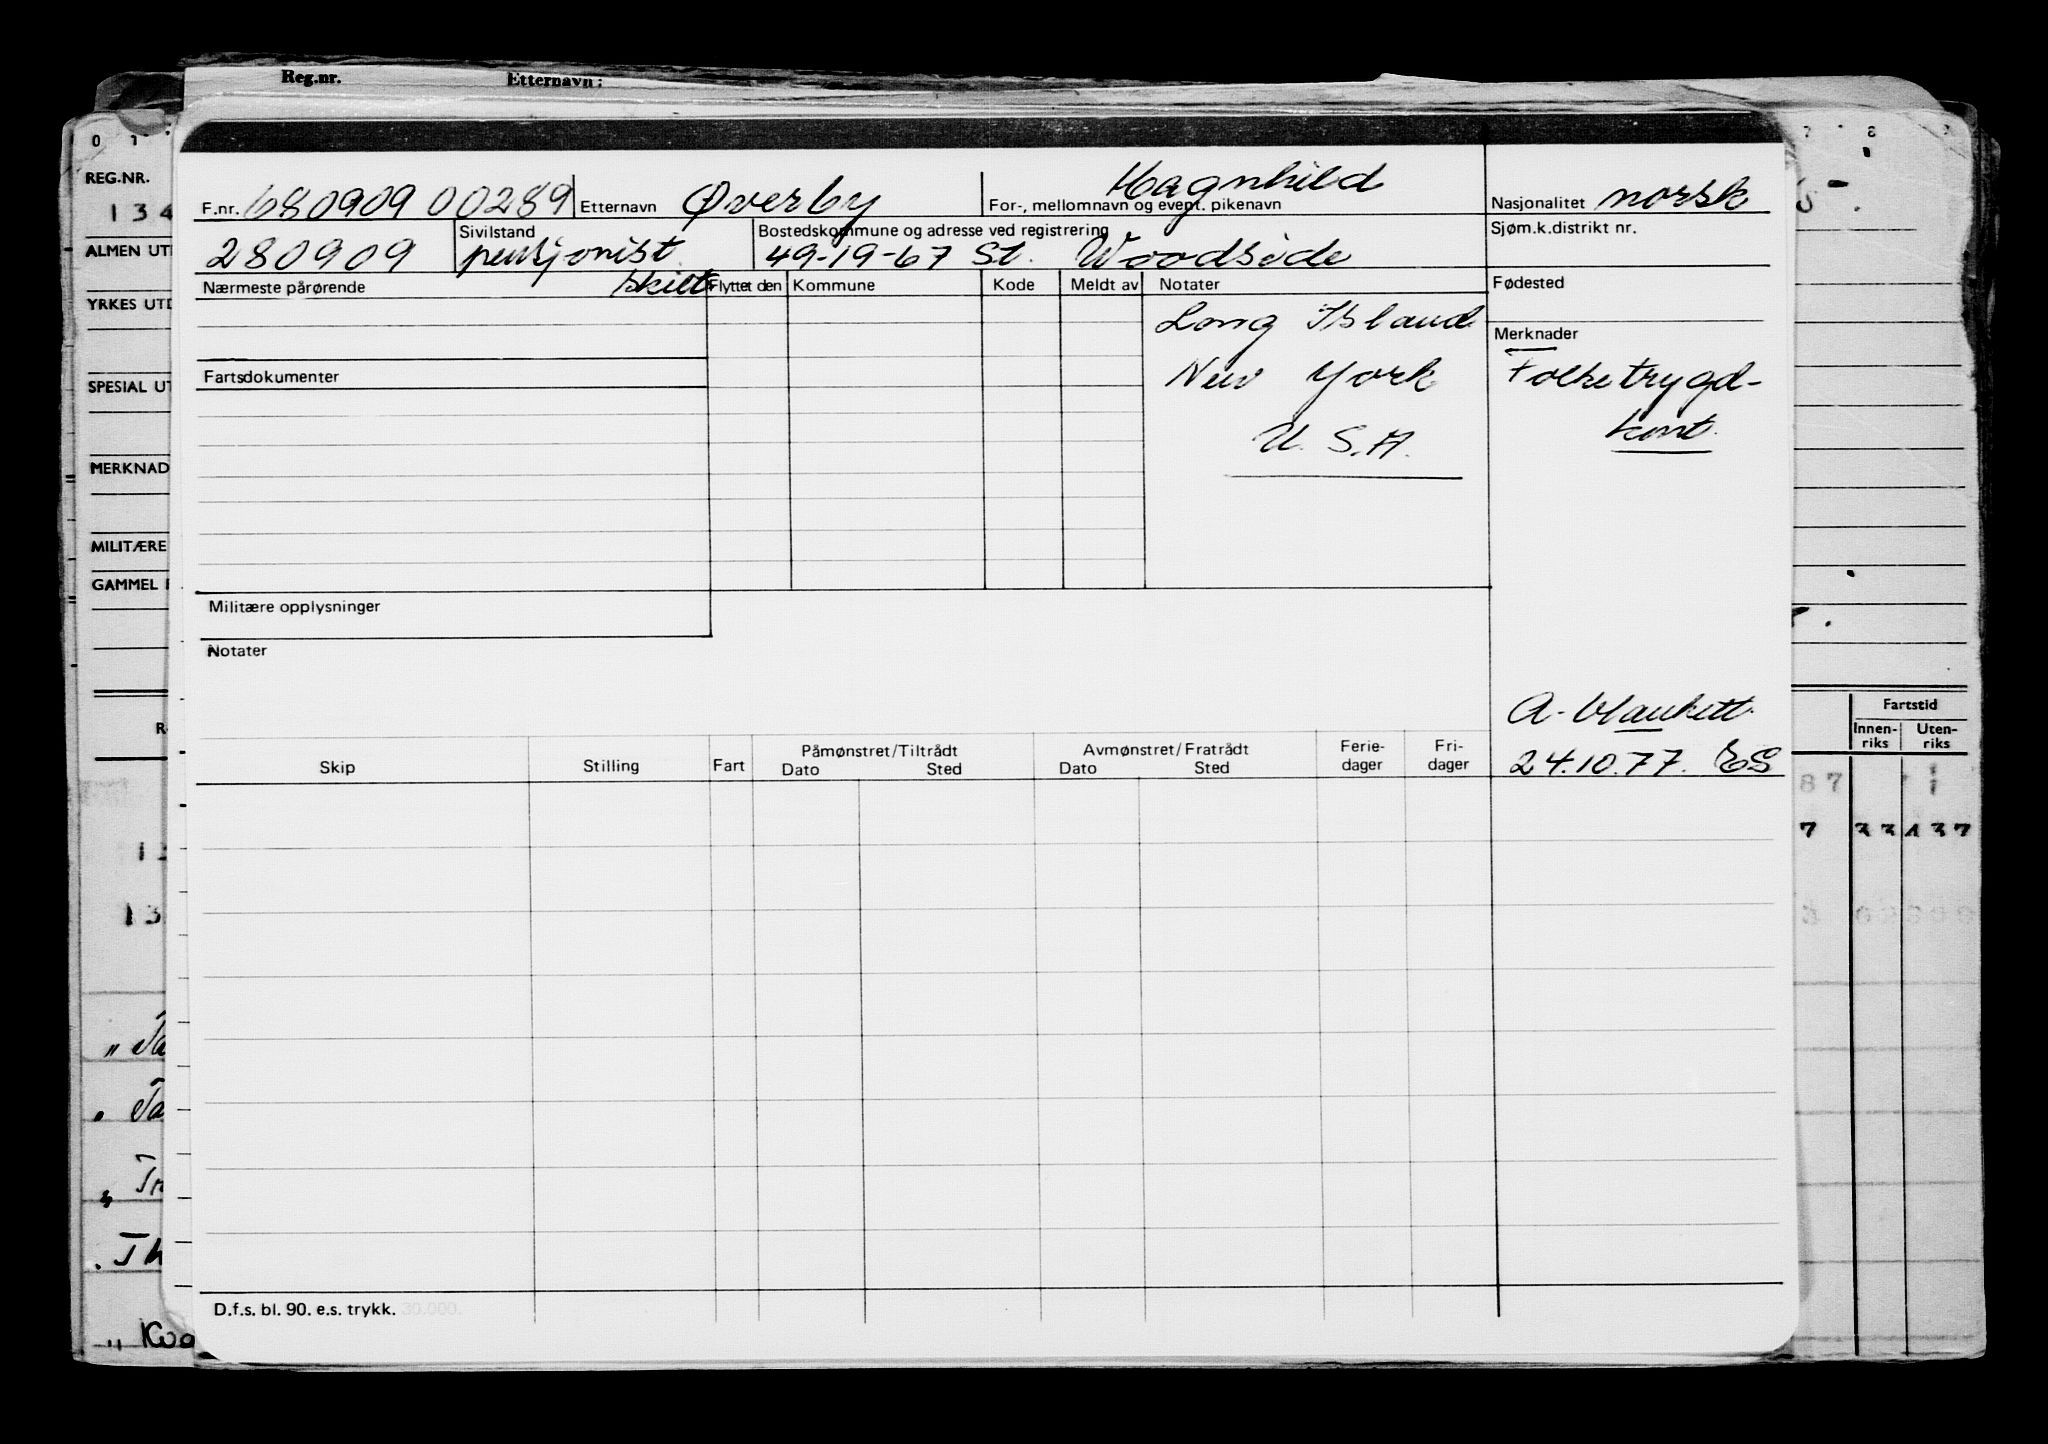 Reg.nr. Etternavn:
0 1 7 8
REG.NR.
134
ALMEN UT
YRKES UTD
SPESIAL UT
MERKNAD
MILITÆRE
GAMMEL
F.nr. 680909 00289 Etternavn Øverby Hagnhild
For-, mellomnavn og event. pikenavn
Nasjonalitet norsk
280909 Sivilstand pensjonist skilt
Bostedskommune og adresse ved registrering
49-19-67 St. Woodside
Sjøm.k.distrikt nr.
Nærmeste pårørende Flyttet den Kommune Kode Meldt av Notater Fødested
Long Island
New York
U.S.A.
Merknader
Folketrygd-
kont.
Fartsdokumenter
Militære opplysninger
Notater
A-blankett
24.10.77. ES
Skip Stilling Fart Påmønstret/Tiltrådt Dato Sted Avmønstret/Fratrådt Dato Sted Ferie-dager Fri-dager
Fartstid
Innen-riks Uten-riks
87
7 33 137
13
„ Ta
Th
„ Koo
D.f.s. bl. 90. e.s. trykk. 30.000.